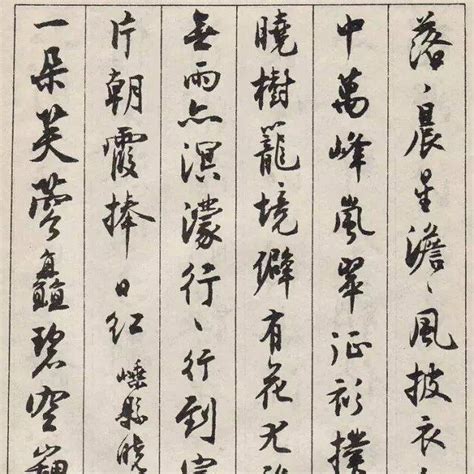 落、晨星澹、風披衣
中萬峰嵐翠征衫撲
曉樹籠境僻有花尤
無雨亦溟濛行、行到
片朝霞捧日紅嵊縣曉
一朵芙蓉矗碧空